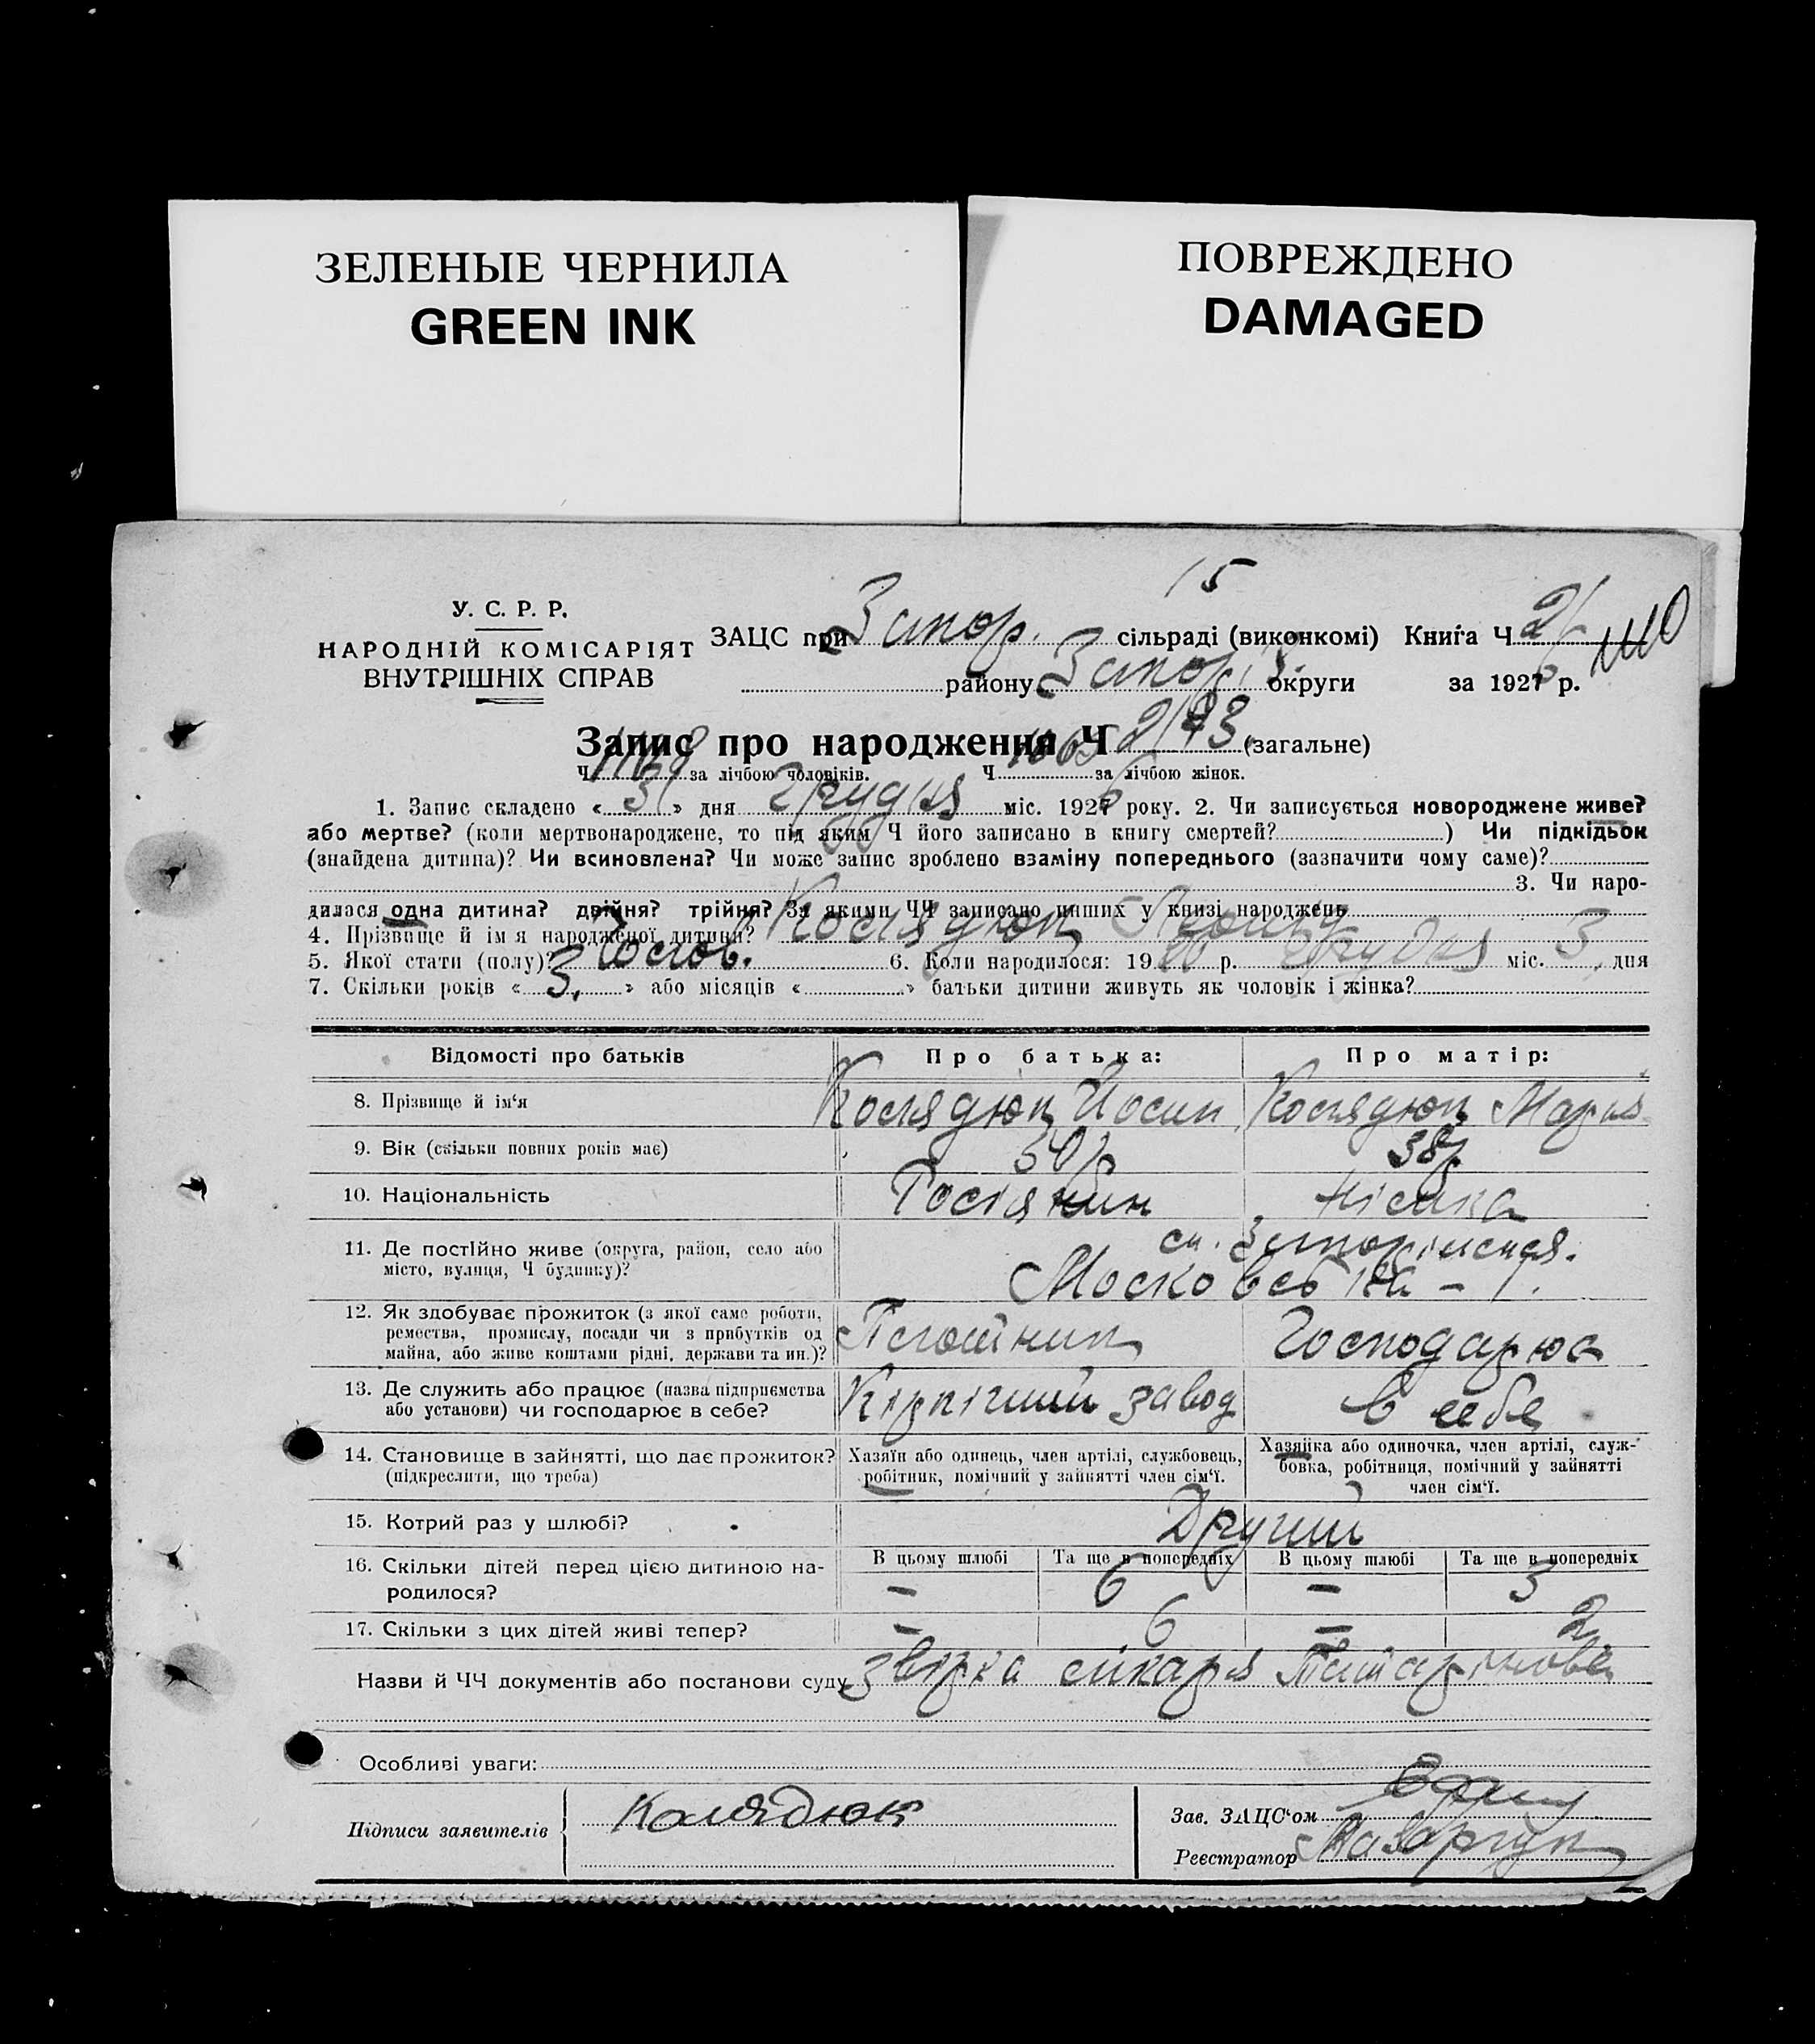 ЗЕЛЕНЫЕ ЧЕРНИЛА
GREEN INK
ПОВРЕЖДЕНО
DAMAGED
15
У. С. Р. Р.
НАРОДНІЙ КОМІСАРІЯТ
ВНУТРІШНІХ СПРАВ
ЗАЦС при Запор. сільраді (виконкомі) Книга Ч 2/
району Запоріз. округи за 1926 р.
Запис про народження Ч 2173 (загальне)
Ч за лічбою чоловіків. Ч за лічбою жінок.
1. Запис складено « 31 » дня Грудня міс. 1926 року. 2. Чи записується новороджене живе?
або мертве? (коли мертвонароджене, то під яким Ч його записано в книгу смертей? ) Чи підкідьок
(знайдена дитина)? Чи всиновлена? Чи може запис зроблено взаміну попереднього (зазначити чому саме)?
3. Чи наро-
дилася одна дитина? двійня? трійня? За якими ЧЧ записано инших у книзі народжень
4. Прізвище й ім'я народженої дитини? Колядюк
5. Якої стати (полу)? Чолов. 6. Коли народилося: 1926 р. Грудня міс. 3 дня
7. Скільки років « 3. » або місяців « » батьки дитини живуть як чоловік і жінка?
Відомості про батьків Про батька: Про матір:
8. Прізвище й ім'я Колядюк Йосип Колядюк Марія
9. Вік (скільки повних років має) 50р 38р
10. Національність Росіянин Німка
11. Де постійно живе (округа, район, село або
місто, вулиця, Ч будинку)?
Московська - 1.
12. Як здобуває прожиток (з якої саме роботи,
ремества, промислу, посади чи з прибутків од
майна, або живе коштами рідні, держави та ин.)?
Тесляр Господарює
13. Де служить або працює (назва підприємства
або установи) чи господарює в себе?
Кірпічний завод в себе
14. Становище в зайнятті, що дає прожиток?
(підкреслити, що треба)
Хазяїн або одинець, член артілі, службовець,
робітник, помічний у зайнятті член сім'ї.
Хазяйка або одиночка, член артілі, служ-
бовка, робітниця, помічний у зайнятті
член сім'ї.
15. Котрий раз у шлюбі? Другий
16. Скільки дітей перед цією дитиною на-
родилося?
В цьому шлюбі Та ще в попередніх В цьому шлюбі Та ще в попередніх
– 6 – 3
17. Скільки з цих дітей живі тепер? – 6 – 2
Назви й ЧЧ документів або постанови суду
Особливі уваги:
Підписи заявителів Колядюк
Зав. ЗАЦС'ом
Реєстратор